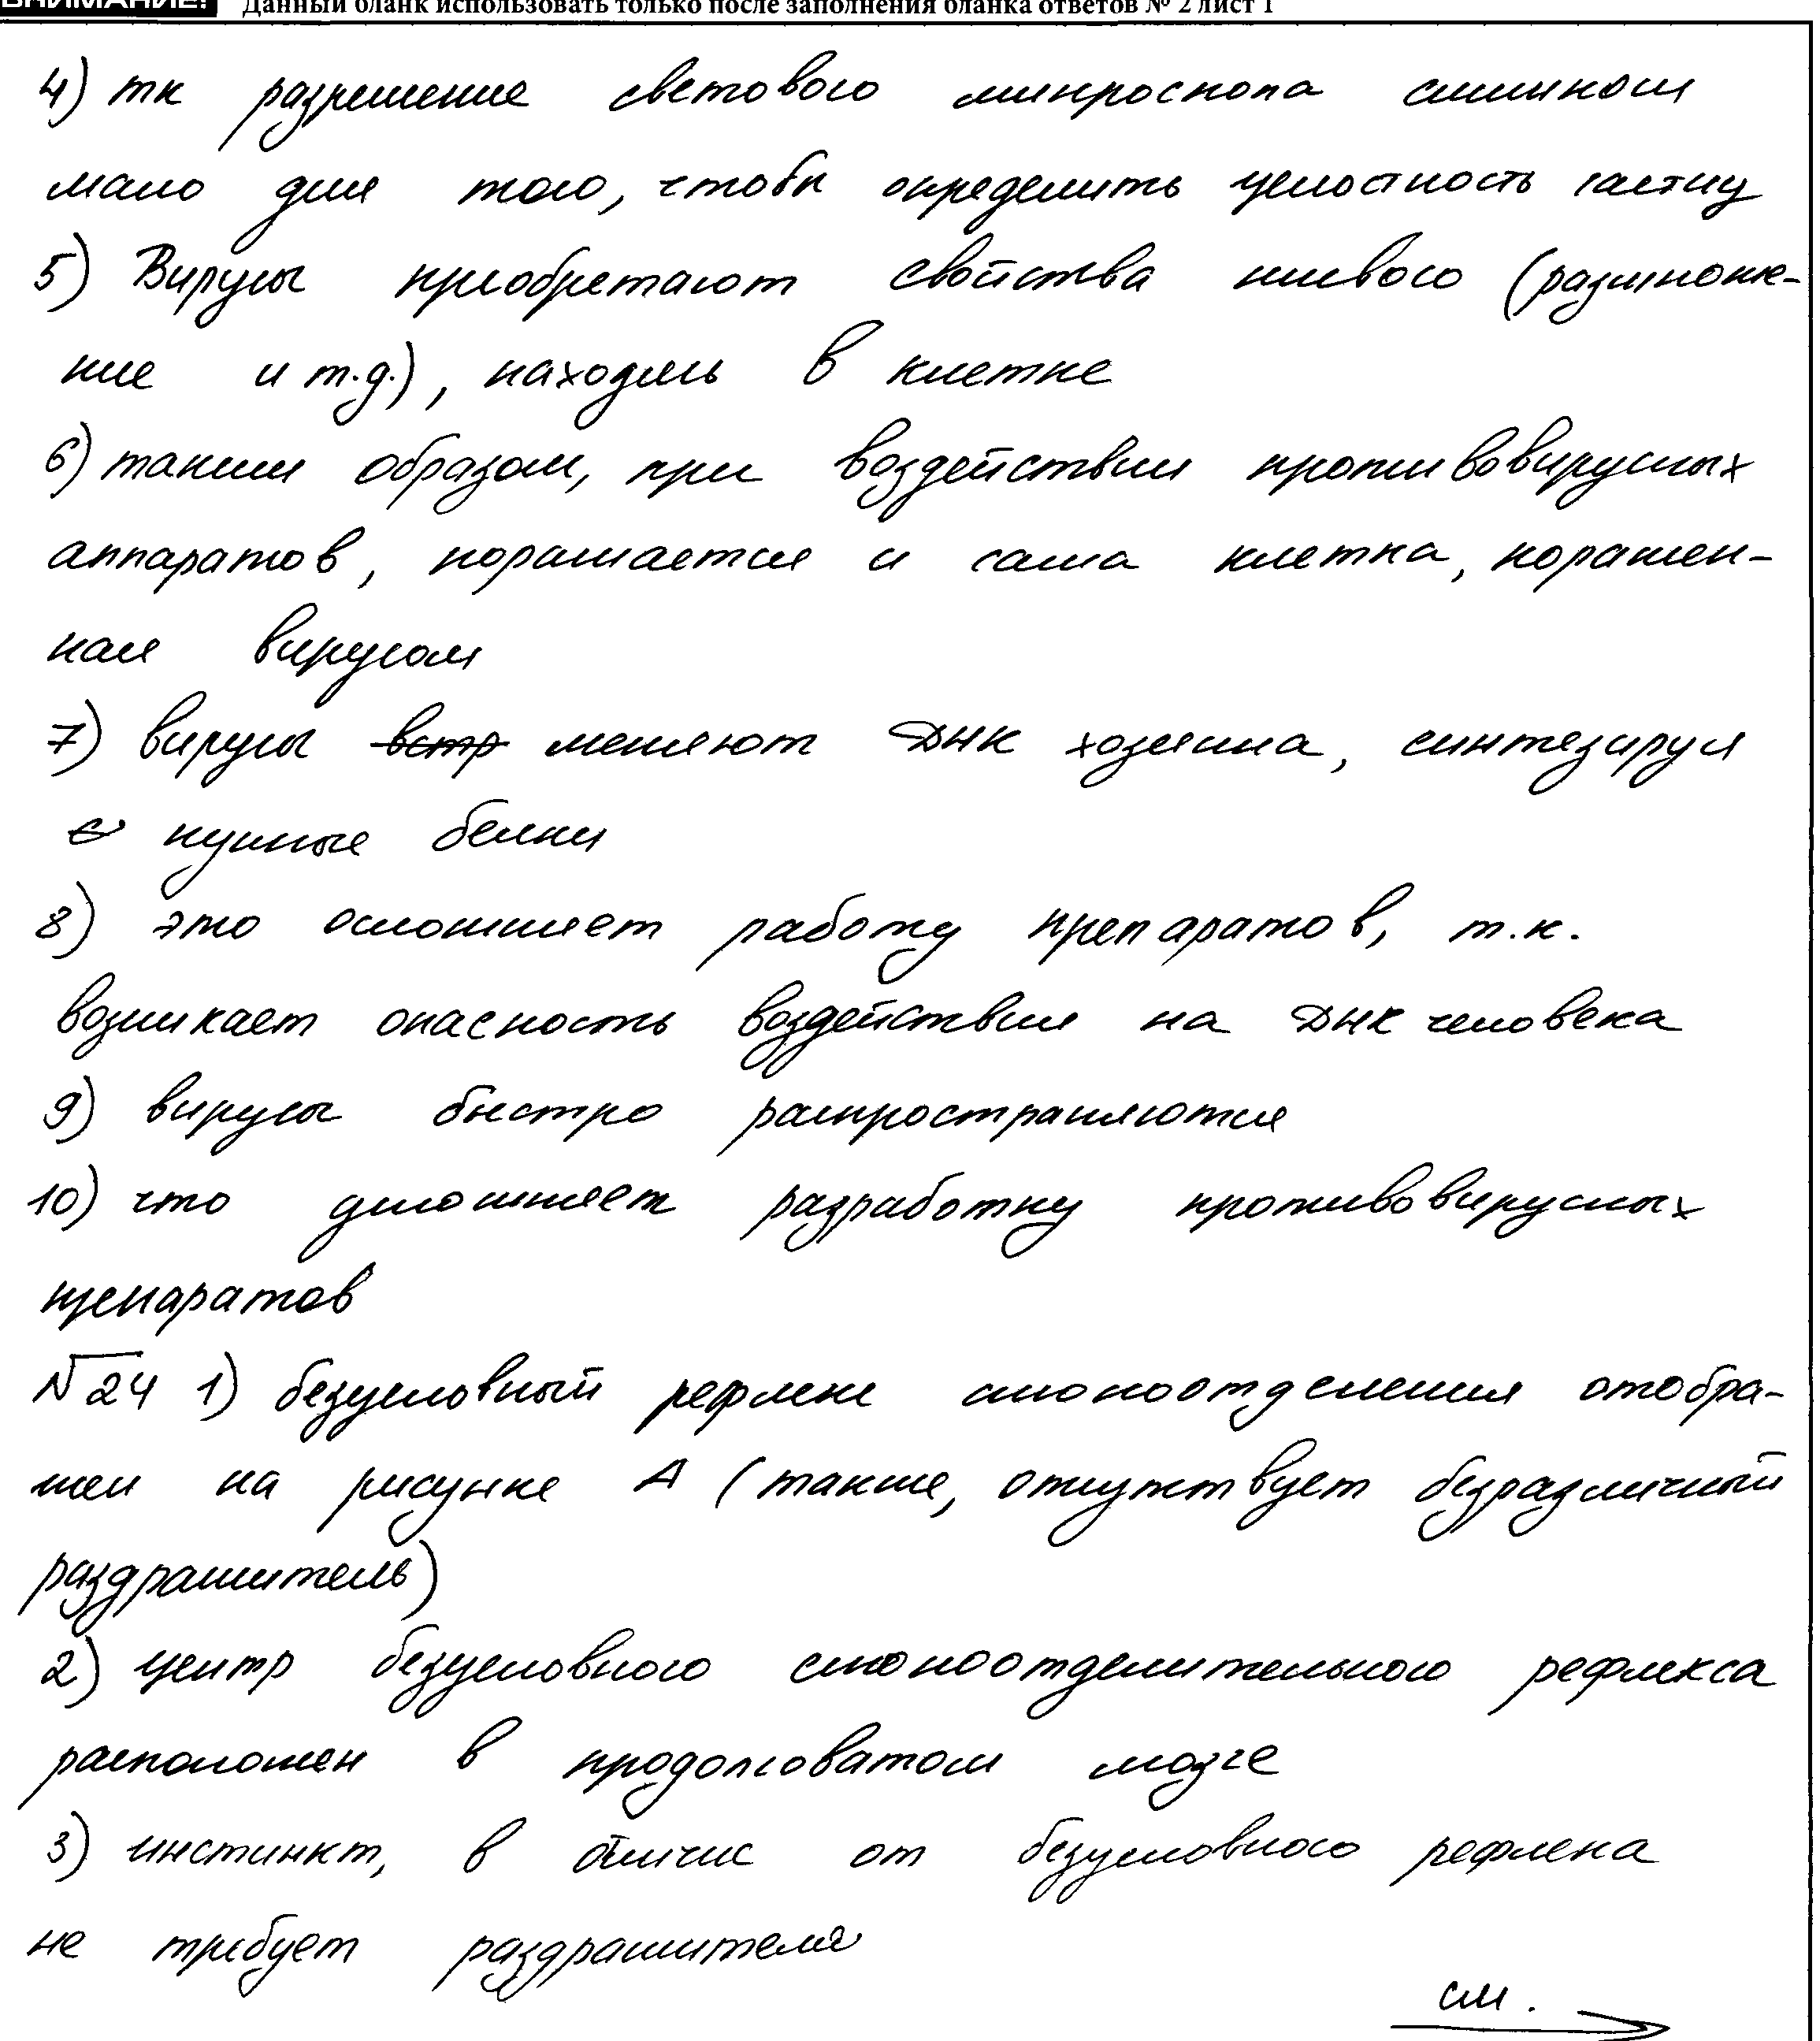 ВНИМАНИЕ! Данный бланк использовать только после заполнения бланка ответов № 2 лист 1
4) тк разрешение светового микроскопа слишком
мало для того, чтобы определить целостность частиц
5) Вирусы приобретают свойства живого (размноже-
ние и т.д.), находясь в клетке
6) таким образом, при воздействии противовирусных
аппаратов, поражается и сама клетка, поражен-
ная вирусом
7) вирусы встр меняют ДНК хозяина, синтезируя
с нужные белки
8) это осложняет работу препаратов, т.к.
возникает опасность воздействия на ДНК человека
9) вирусы быстро распространяются
10) что усложняет разработку противовирусных
препаратов
№24 1) безусловный рефлекс слюноотделения отобра-
жен на рисунке А (также, отсутствует безразличный
раздражитель)
2) центр безусловного слюноотделительного рефлекса
расположен в продолговатом мозге
3) инстинкт, в отличие от безусловного рефлекса
не требует раздражителя
см.